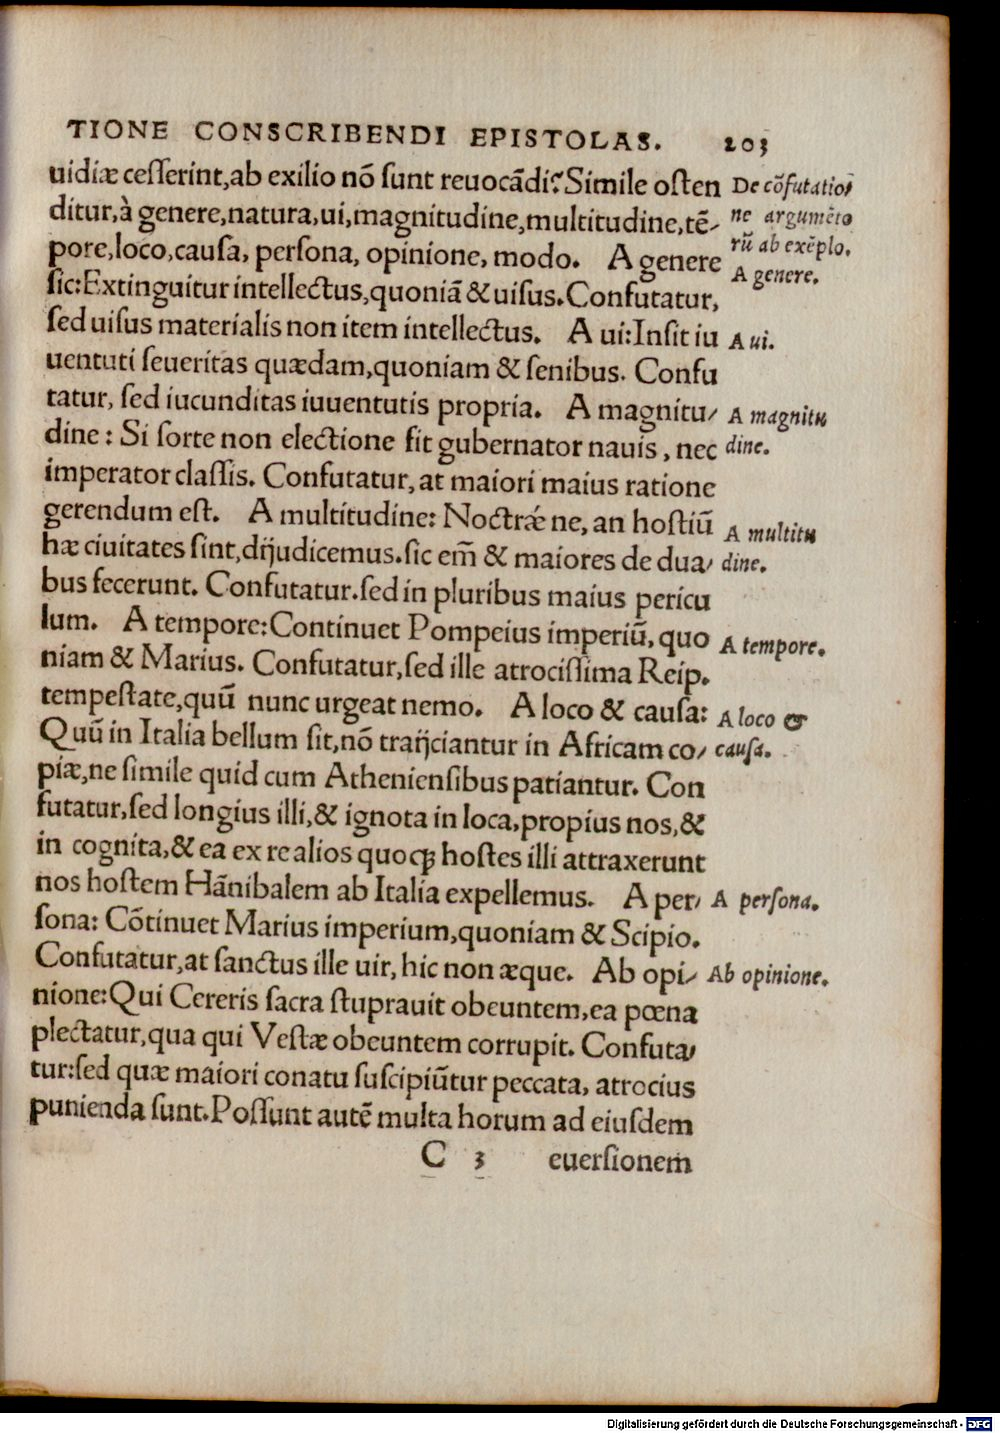 TIONE CONSCRIBENDI EPISTOLAS. 203
uidiæ cesserint, ab exilio nõ sunt reuocãdi? Simile osten
De cõfutatio/
ditur, à genere, natura, ui, magnitudine, multitudine, tẽ/
ne argumẽto
pore, loco, causa, persona, opinione, modo. A genere
rũ ab exẽplo.
A genere.
sic: Extinguitur intellectus, quoniã & uisus. Confutatur,
sed uisus materialis non item intellectus. A ui: Insit iu
A ui.
uentuti seueritas quædam, quoniam & senibus. Confu
tatur, sed iucunditas iuuentutis propria. A magnitu/
A magnitu
dine: Si sorte non electione fit gubernator nauis, nec
dine.
imperator classis. Confutatur, at maiori maius ratione
gerendum est. A multitudine: Noctræ ne, an hostiũ
A multitu
hæ ciuitates sint, dijudicemus. sic em̃ & maiores de dua/
dine.
bus fecerunt. Confutatur. sed in pluribus maius pericu
lum. A tempore: Continuet Pompeius imperiũ, quo
A tempore.
niam & Marius. Confutatur, sed ille atrocissima Reip.
tempestate, quũ nunc urgeat nemo. A loco & causa:
A loco &
Quũ in Italia bellum sit, nõ traijciantur in Africam co/
causa.
piæ, ne simile quid cum Atheniensibus patiantur. Con
futatur, sed longius illi, & ignota in loca, propius nos, &
in cognita, & ea ex re alios quoqꝫ hostes illi attraxerunt
nos hostem Hãnibalem ab Italia expellemus. A per/
A persona.
sona: Cõtinuet Marius imperium, quoniam & Scipio.
Confutatur, at sanctus ille uir, hic non æque. Ab opi/
Ab opinione.
nione: Qui Cereris sacra stuprauit obeuntem, ea pœna
plectatur, qua qui Vestæ obeuntem corrupit. Confuta/
tur: sed quæ maiori conatu suscipiũtur peccata, atrocius
punienda sunt. Possunt autẽ multa horum ad eiusdem
C 3 euersionem
Digitalisierung gefördert durch die Deutsche Forschungsgemeinschaft - DFG